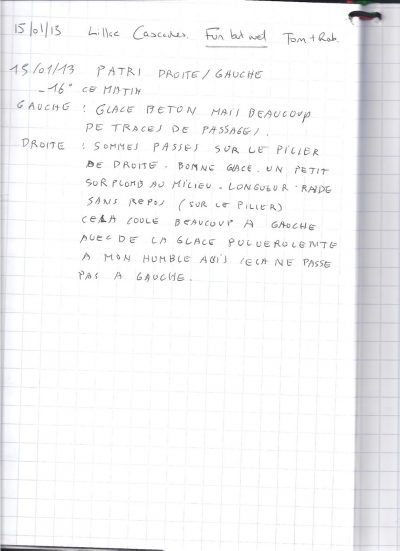 15/01/13 Lillaz Cascades. Fun but wet Tom + Rob.
15/01/13 PATRI DROITE/GAUCHE
-16° CE MATIN
GAUCHE : GLACE BETON MAIS BEAUCOUP
DE TRACES DE PASSAGES.
DROITE : SOMMES PASSES SUR LE PILIER
DE DROITE. BONNE GLACE. UN PETIT
SURPLOMB AU MILIEU. LONGUEUR RAIDE
SANS REPOS (SUR LE PILIER)
CELA COULE BEAUCOUP A GAUCHE
AVEC DE LA GLACE PULVERULENTE
A MON HUMBLE AVIS CELA NE PASSE
PAS A GAUCHE.